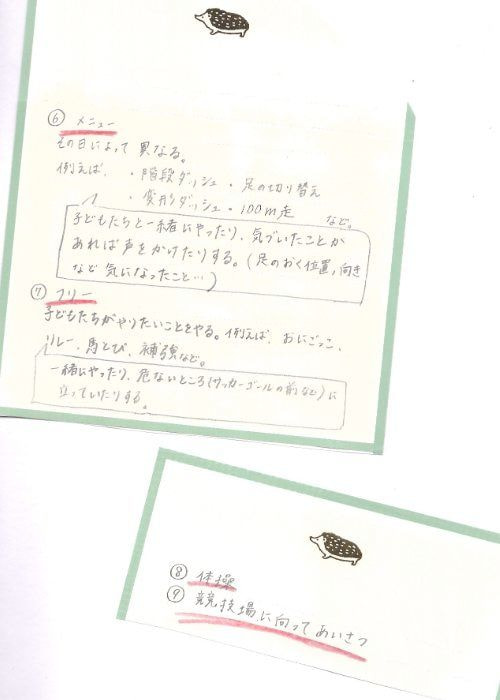 ⑥ メニュー
その日によって異なる。
例えば、・階段ダッシュ・足の切り替え
・変形ダッシュ・100m走 など。
子どもたちと一緒にやったり、気づいたことが
あれば声をかけたりする。(足のおく位置、向き
など気になったこと…)
⑦ フリー
子どもたちがやりたいことをやる。例えば、おにごっこ、
リレー、馬とび、補強など。
一緒にやったり、危ないところ(サッカーゴールの前など)に
立っていたりする。
⑧ 体操
⑨ 競技場に向ってあいさつ